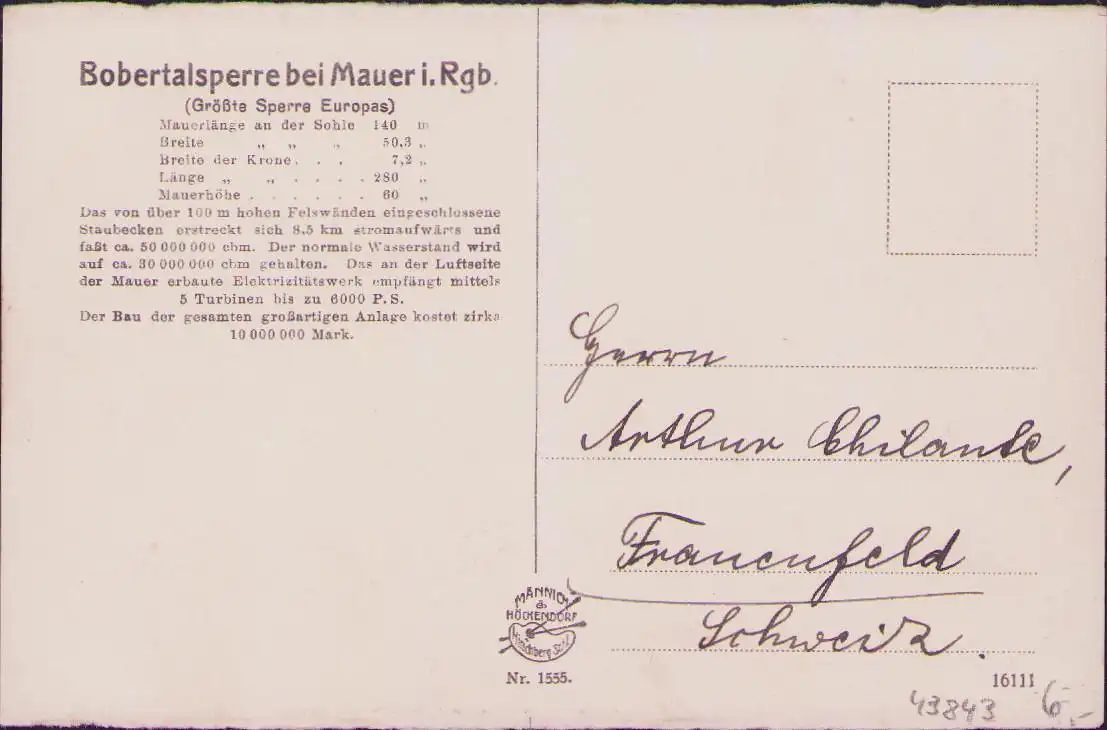 Bobertalsperre bei Mauer i. Rgb.
(Größte Sperre Europas)
Mauerlänge an der Sohle 140 m
Breite „ „ „ 50,3 „
Breite der Krone . . . 7,2 „
Länge „ „ . . . . 280 „
Mauerhöhe . . . . . . 60 „
Das von über 100 m hohen Felswänden eingeschlossene
Staubecken erstreckt sich 8,5 km stromaufwärts und
faßt ca. 50 000 000 cbm. Der normale Wasserstand wird
auf ca. 30 000 000 cbm gehalten. Das an der Luftseite
der Mauer erbaute Elektrizitätswerk empfängt mittels
5 Turbinen bis zu 6000 P. S.
Der Bau der gesamten großartigen Anlage kostet zirka
10 000 000 Mark.
Herrn
Arthur Chilante,
Frauenfeld
Schweiz.
MÄNNICH
&
HÖCKENDORF
Hirschberg Schl.
Nr. 1555.
16111
43843 6,-